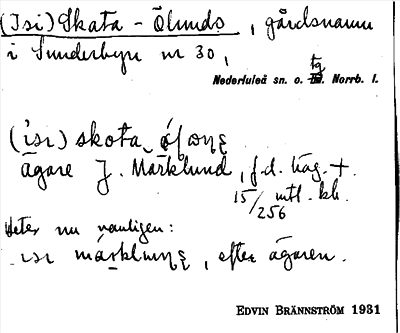 (Isi) Skata - Ölunds, gårdsnamn
i Sunderbyn nr 30,
tg
Nederluleå sn. o. hd. Norrb. l.
(isi) skota
ägare J. Marklund, f.d. häg. +.
15/256 mtl. kb.
Heter nu vanligen:
isi, efter ägaren.
EDVIN BRÄNNSTRÖM 1931